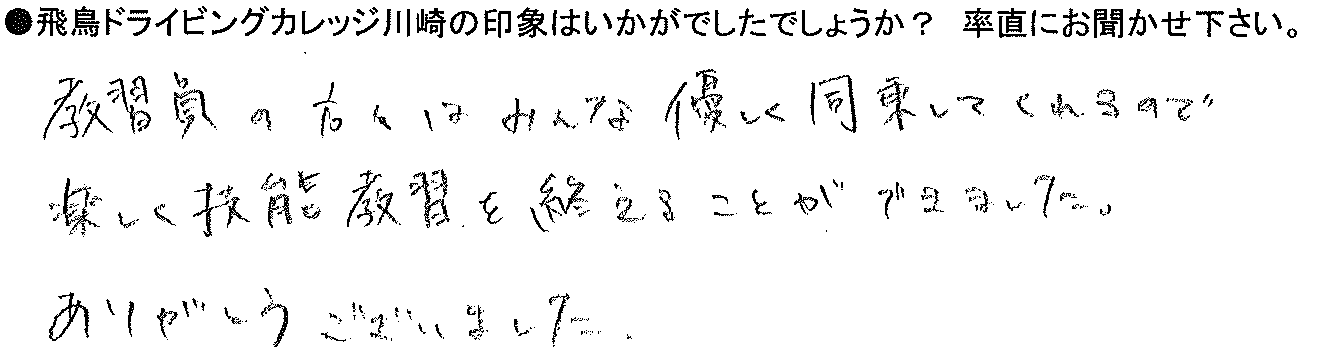 ●飛鳥ドライビングカレッジ川崎の印象はいかがでしたでしょうか？ 率直にお聞かせ下さい。
教習員の方々はみんな優しく同乗してくれるので
楽しく技能教習を終えることができました。
ありがとうございました.